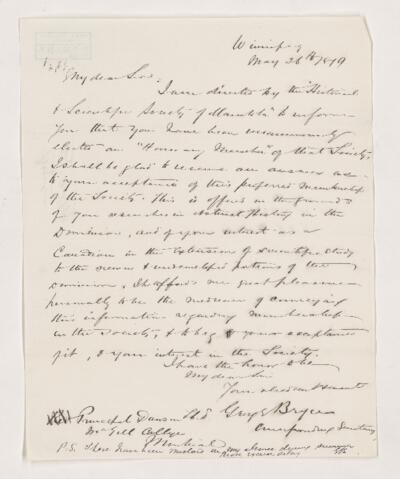 Winnipeg
May 26th 1879
My dear Sir,
I am directed by the "Historical
& Scientific Society of Manitoba" to inform
you that you have been unanimously
elected an "Honorary Member" of that Society.
I shall be glad to receive an answer as
to your acceptance of this preferred membership
of the Society. This is offered on the ground
of your researches in Natural History in the
Dominion, and of your interest as a
Canadian in the extension of scientific study
to the newer & undeveloped portions of the
Dominion. It affords me great pleasure
personally to be the medium of conveying
this information regarding membership
in the Society, & to beg your acceptance
of it, & your interest in the Society.
I have the honor to be
My dear Sir
Your obedient Servant
George Bryce
Corresponding Secretary
Principal Dawson LL.D
McGill College
Montreal
P.S. There have been